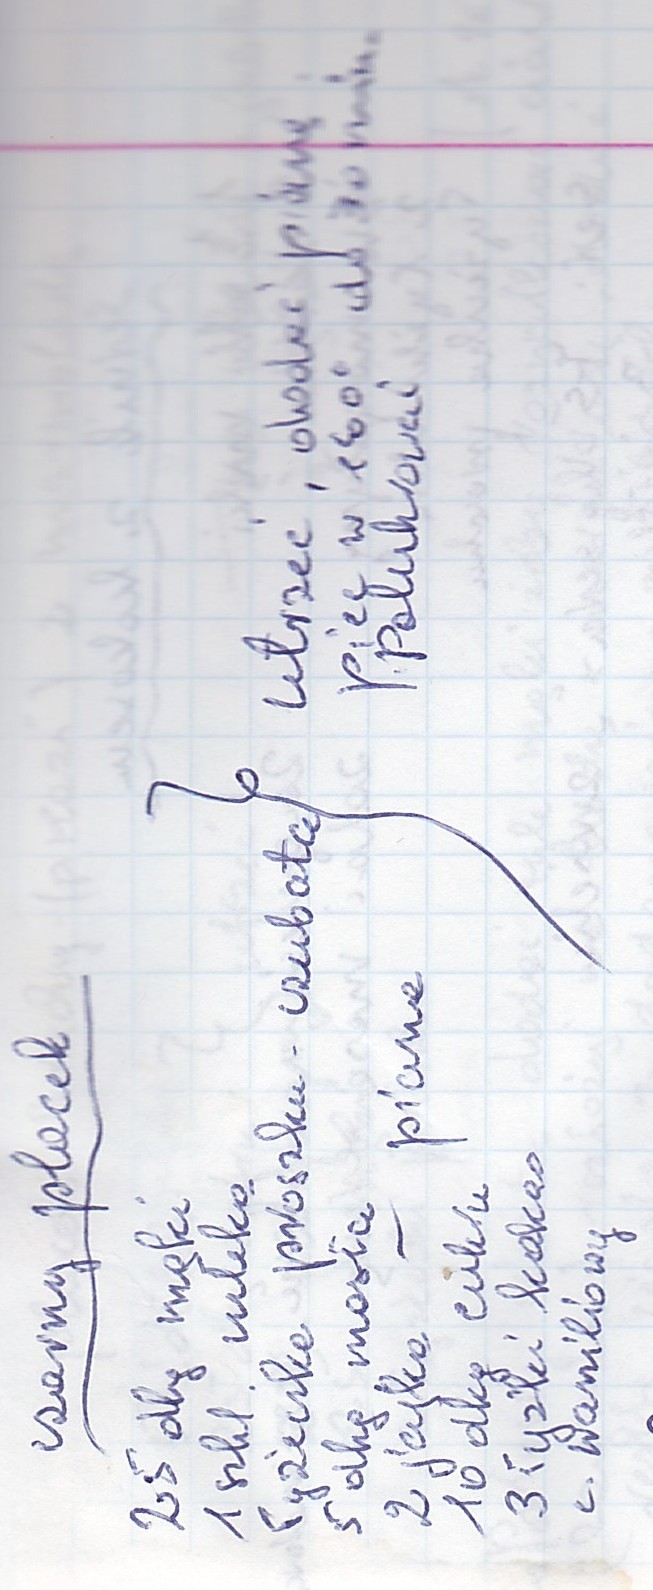 czarny placek
25 dkg mąki
1 szkl. mleka
łyżeczka proszku - czubata
5 dkg masła
2 jajka — piana
10 dkg cukru
3 łyżki kakao
c. waniliowy
Utrzeć, dodać pianę.
piec w 180° do min.
Polukrować